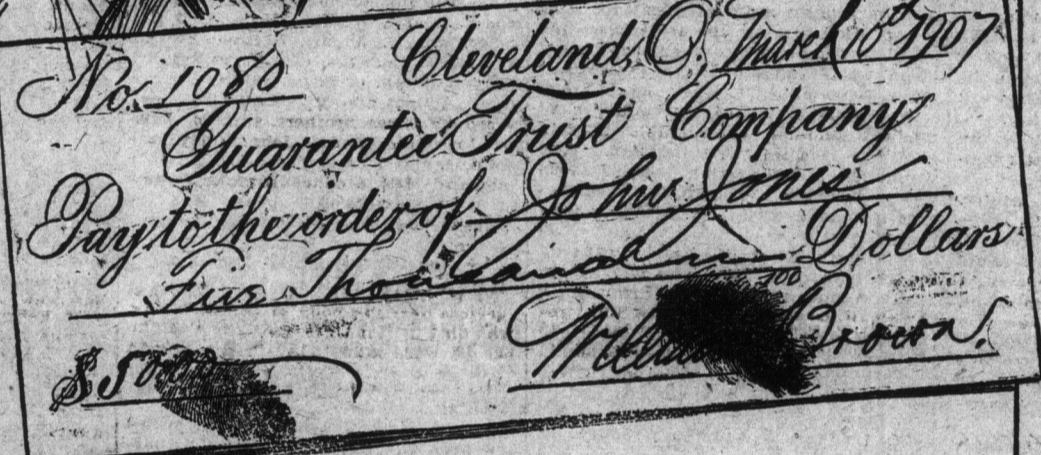 No. 1080 Cleveland, O. March 10th 1907
Guarantee Trust Company
Pay to the order of John Jones
Five Thousand no/100 Dollars
$5000 William Brown.